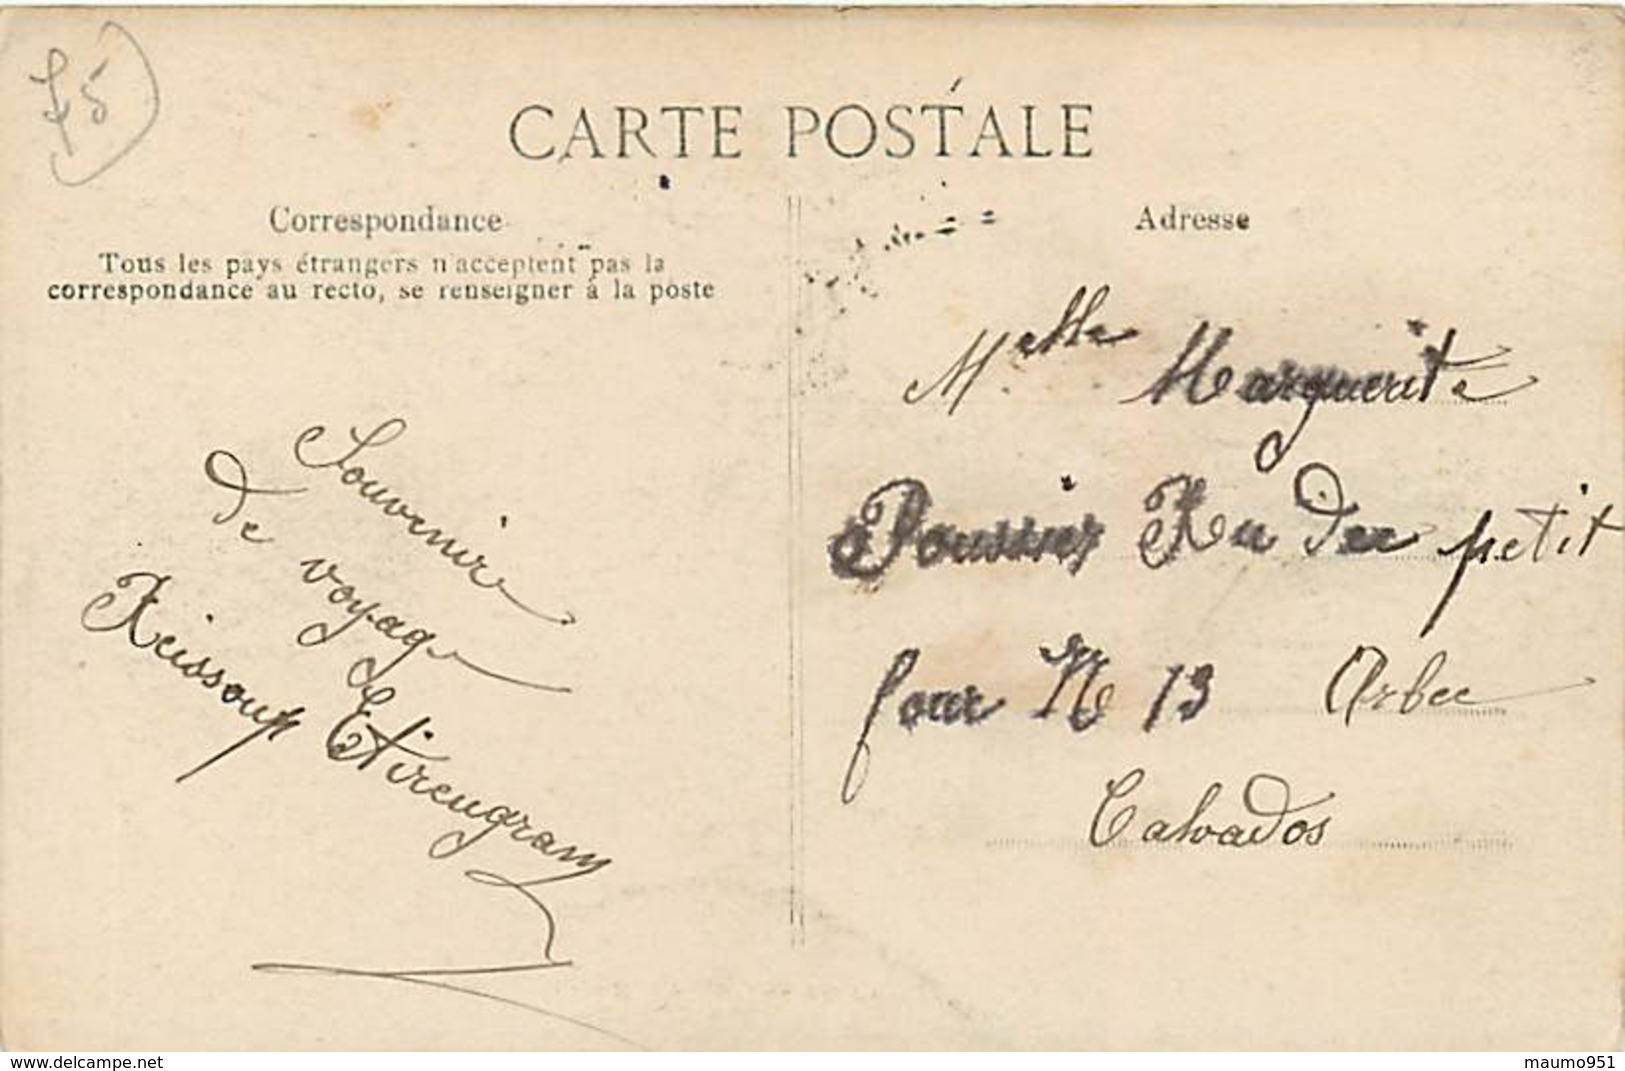 £5
CARTE POSTALE
Correspondance
Tous les pays étrangers n'acceptent pas la
correspondance au recto, se renseigner à la poste
Souvenir
de voyage
Adresse
Melle Marguerite
Rue du petit
four N 13 Orbec
Calvados
www.delcampe.net
maumo951